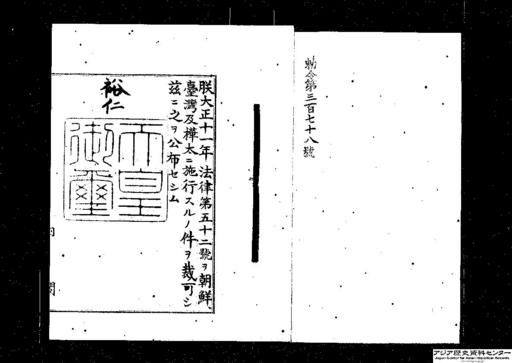 勅令第三百七十八號
朕大正十一年法律第五十二號ヲ朝鮮、
臺灣及樺太ニ施行スルノ件ヲ裁可シ
茲ニ之ヲ公布セシム
裕仁
天皇御璽
内
閣
アジア歴史資料センター
Japan Center for Asian Historical Records